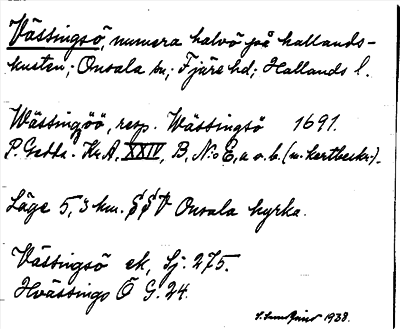 Vässingsö, numera halvö på hallands-
kusten; Onsala sn; Fjäre hd; Hallands l.
Wässingöö, resp. Wässingsö 1691.
P. Gedda. Kr. A, XXIV, B, No: E, a o. b. (m. kartbeskr.).
Läge 5,3 km. SSV Onsala kyrka.
Vässingsö ek, Sj. 275.
Hvässings Ö G. 24.
1938.